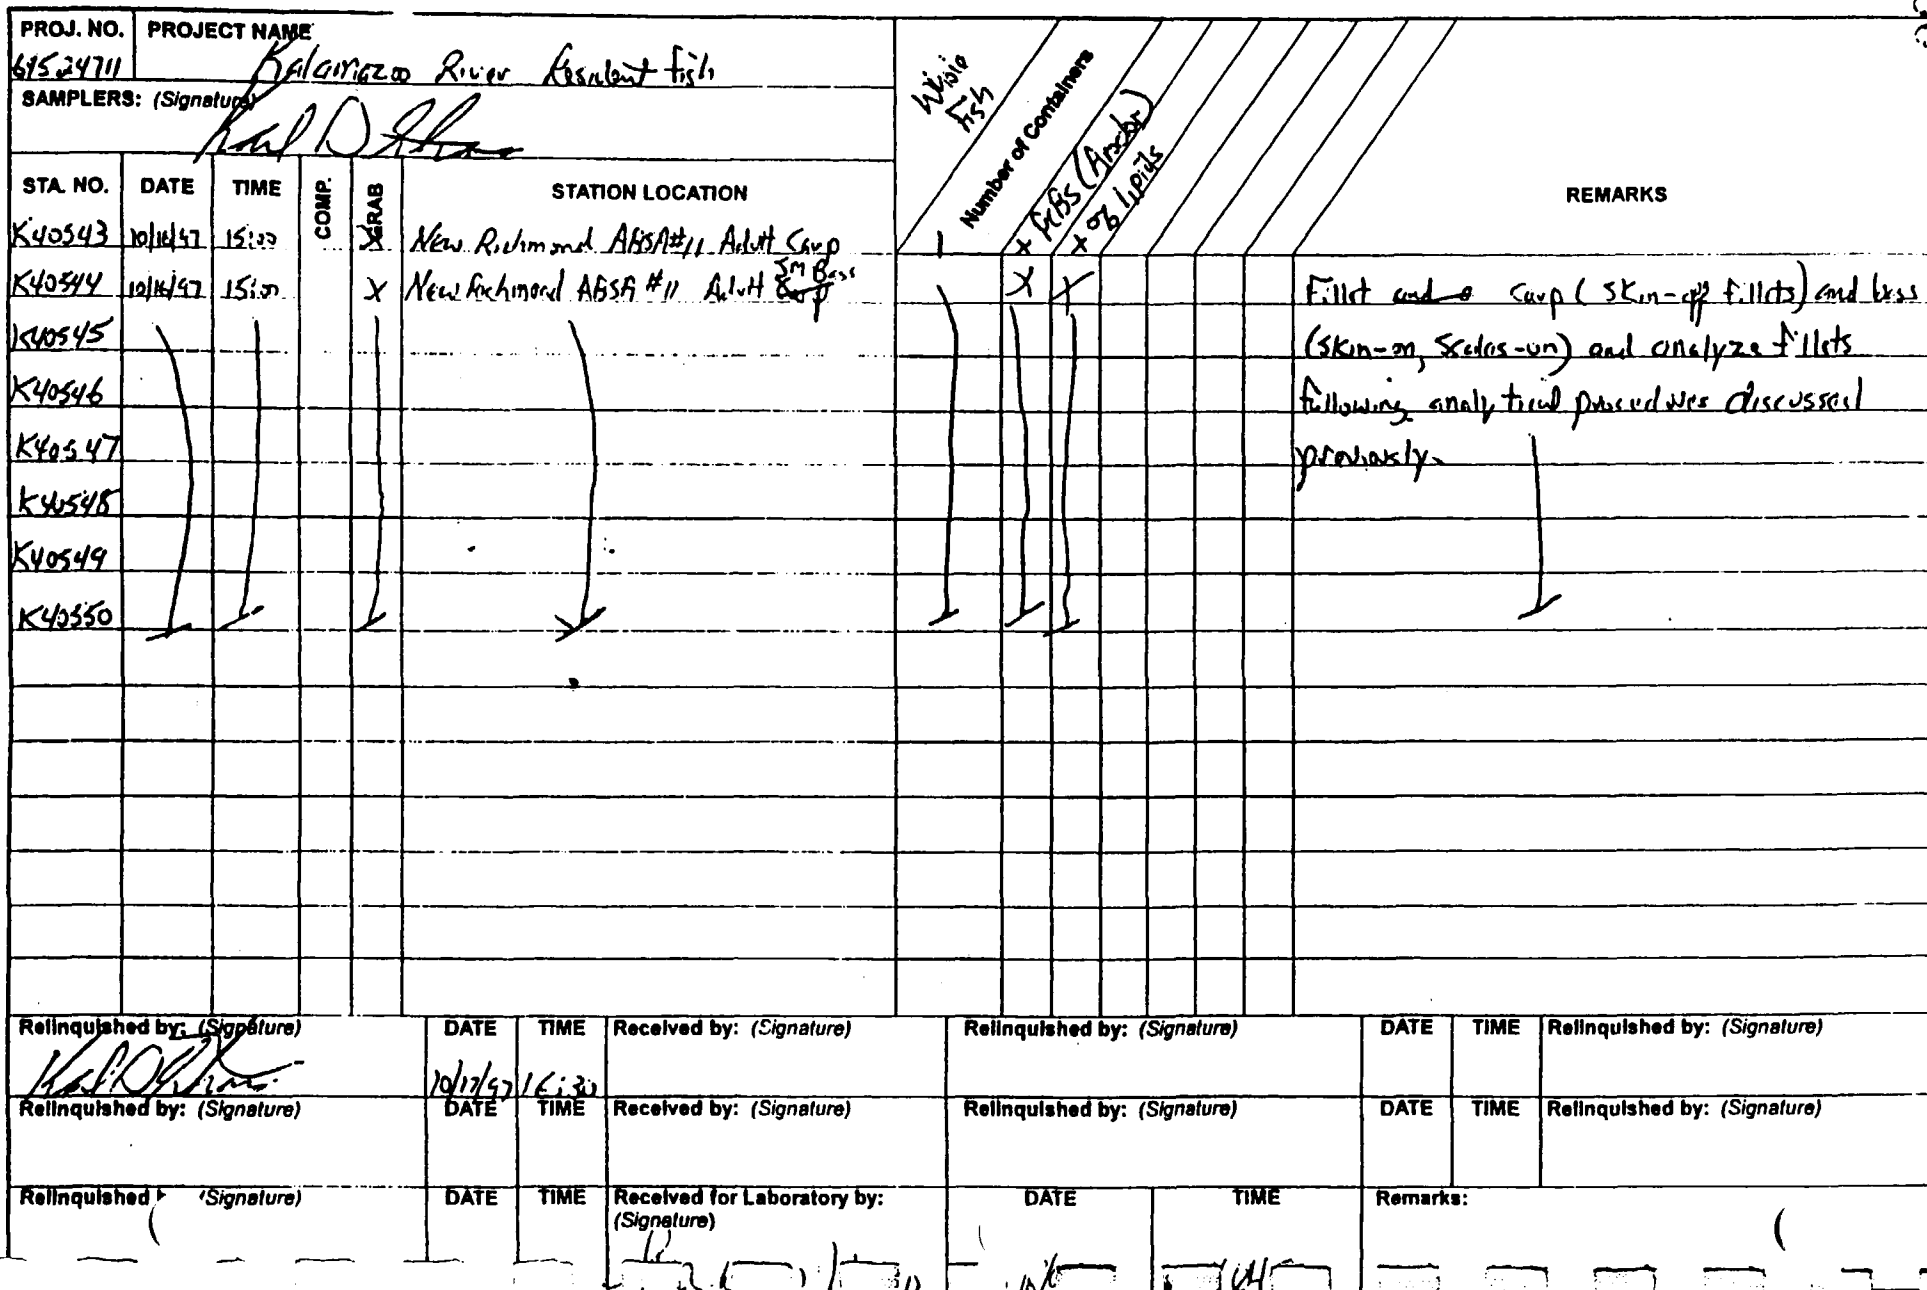 PROJ. NO. PROJECT NAME
64524711 Kalamazoo River Resident fish
SAMPLERS: (Signature)
Whole Fish
Number of Containers
PCBs (Aroclor)
% lipids
STA. NO. DATE TIME COMP. GRAB STATION LOCATION REMARKS
K40543 10/16/97 15:00 X New Richmond ABSA #11 Adult Carp 1 X X
K40544 10/16/97 15:00 X New Richmond ABSA #11 Adult Carp SM Bass X X Fillet and carp (skin-off fillets) and bass
K40545 (skin-on, scales-on) and analyze fillets
K40546 following analytical procedures discussed
K40547 previously.
K40548
K40549
K40550
Relinquished by: (Signature) DATE TIME Received by: (Signature) Relinquished by: (Signature) DATE TIME Relinquished by: (Signature)
10/17/97 16:30
Relinquished by: (Signature) DATE TIME Received by: (Signature) Relinquished by: (Signature) DATE TIME Relinquished by: (Signature)
Relinquished (Signature) DATE TIME Received for Laboratory by: DATE TIME Remarks:
(Signature)